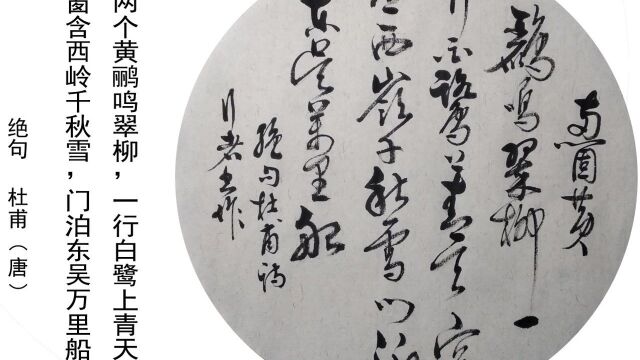 两箇黄
鸝鳴翠柳一
行白鷺上青天窗
含西嶺千秋雪门泊
东吴萬里船
绝句杜甫詩
两个黄鹂鸣翠柳，一行白鹭上青天
窗含西岭千秋雪，门泊东吴万里船
绝句 杜甫（唐）